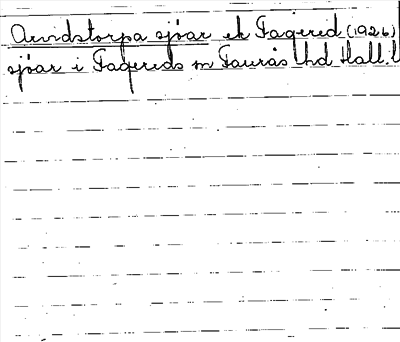 Arvidstorpa sjöar ek Fagered (1926)
sjöar i Fagereds sn Faurås hd Hall. l